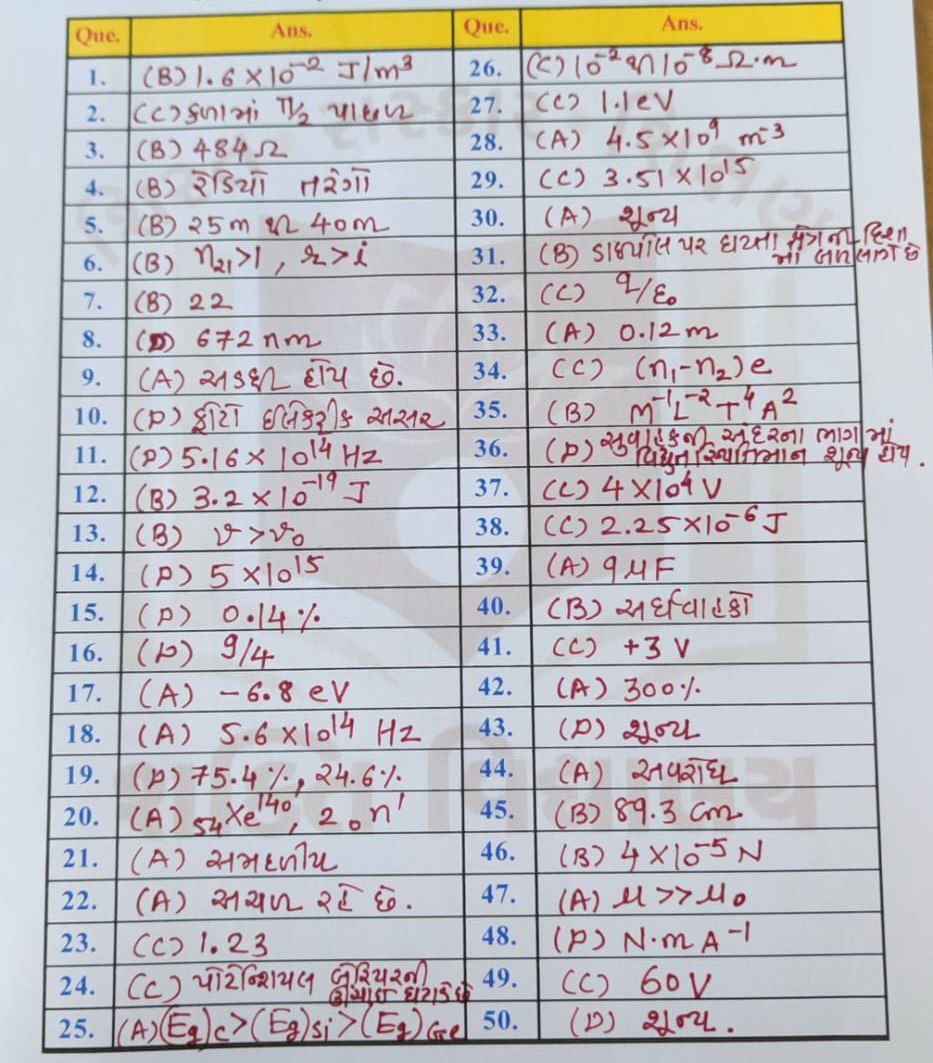 Que. Ans. Que. Ans.
1. (B) 1.6 × 10⁻² J/m³ 26. (C) 10⁻² થી 10⁻⁸ Ω·m
2. (C) કળામાં π/2 પાછળ 27. (C) 1.1 eV
3. (B) 484 Ω 28. (A) 4.5 × 10⁹ m⁻³
4. (B) રેડિયો તરંગો 29. (C) 3.51 × 10¹⁵
5. (B) 25 m થી 40 m 30. (A) શૂન્ય
6. (B) n₂₁ > 1, r > i 31. (B) ડાઇપોલ પર ઘટતા ક્ષેત્રની દિશામાં બળ લાગે છે
7. (B) 22 32. (C) q/ε₀
8. (D) 672 nm 33. (A) 0.12 m
9. (A) હોય છે. 34. (C) (n₁-n₂) e
10. (D) ફોટો ઇલેક્ટ્રીક અસર 35. (B) M⁻¹L⁻²T⁴A²
11. (D) 5.16 × 10¹⁴ Hz 36. (D) સુવાહકની અંદરના ભાગમાં વિદ્યુત સ્થિતિમાન શૂન્ય હોય.
12. (B) 3.2 × 10⁻¹⁹ J 37. (C) 4 × 10⁴ V
13. (B) ν > ν₀ 38. (C) 2.25 × 10⁻⁶ J
14. (D) 5 × 10¹⁵ 39. (A) 9 μF
15. (D) 0.14 % 40. (B) અર્ધવાહકો
16. (D) 9/4 41. (C) +3 V
17. (A) - 6.8 eV 42. (A) 300 %
18. (A) 5.6 × 10¹⁴ Hz 43. (D) શૂન્ય
19. (D) 75.4 %, 24.6 % 44. (A) અવરોધ
20. (A) ₅₄Xe¹⁴⁰, 2 ₀n¹ 45. (B) 89.3 cm
21. (A) સમદળીય 46. (B) 4 × 10⁻⁵ N
22. (A) અચળ રહે છે. 47. (A) μ >> μ₀
23. (C) 1.23 48. (D) N·m A⁻¹
24. (C) પોટેન્શિયલ બેરિયરની ઊંચાઈ ઘટાડે છે 49. (C) 60 V
25. (A) (Eg)c > (Eg)si > (Eg)Ge 50. (D) શૂન્ય.